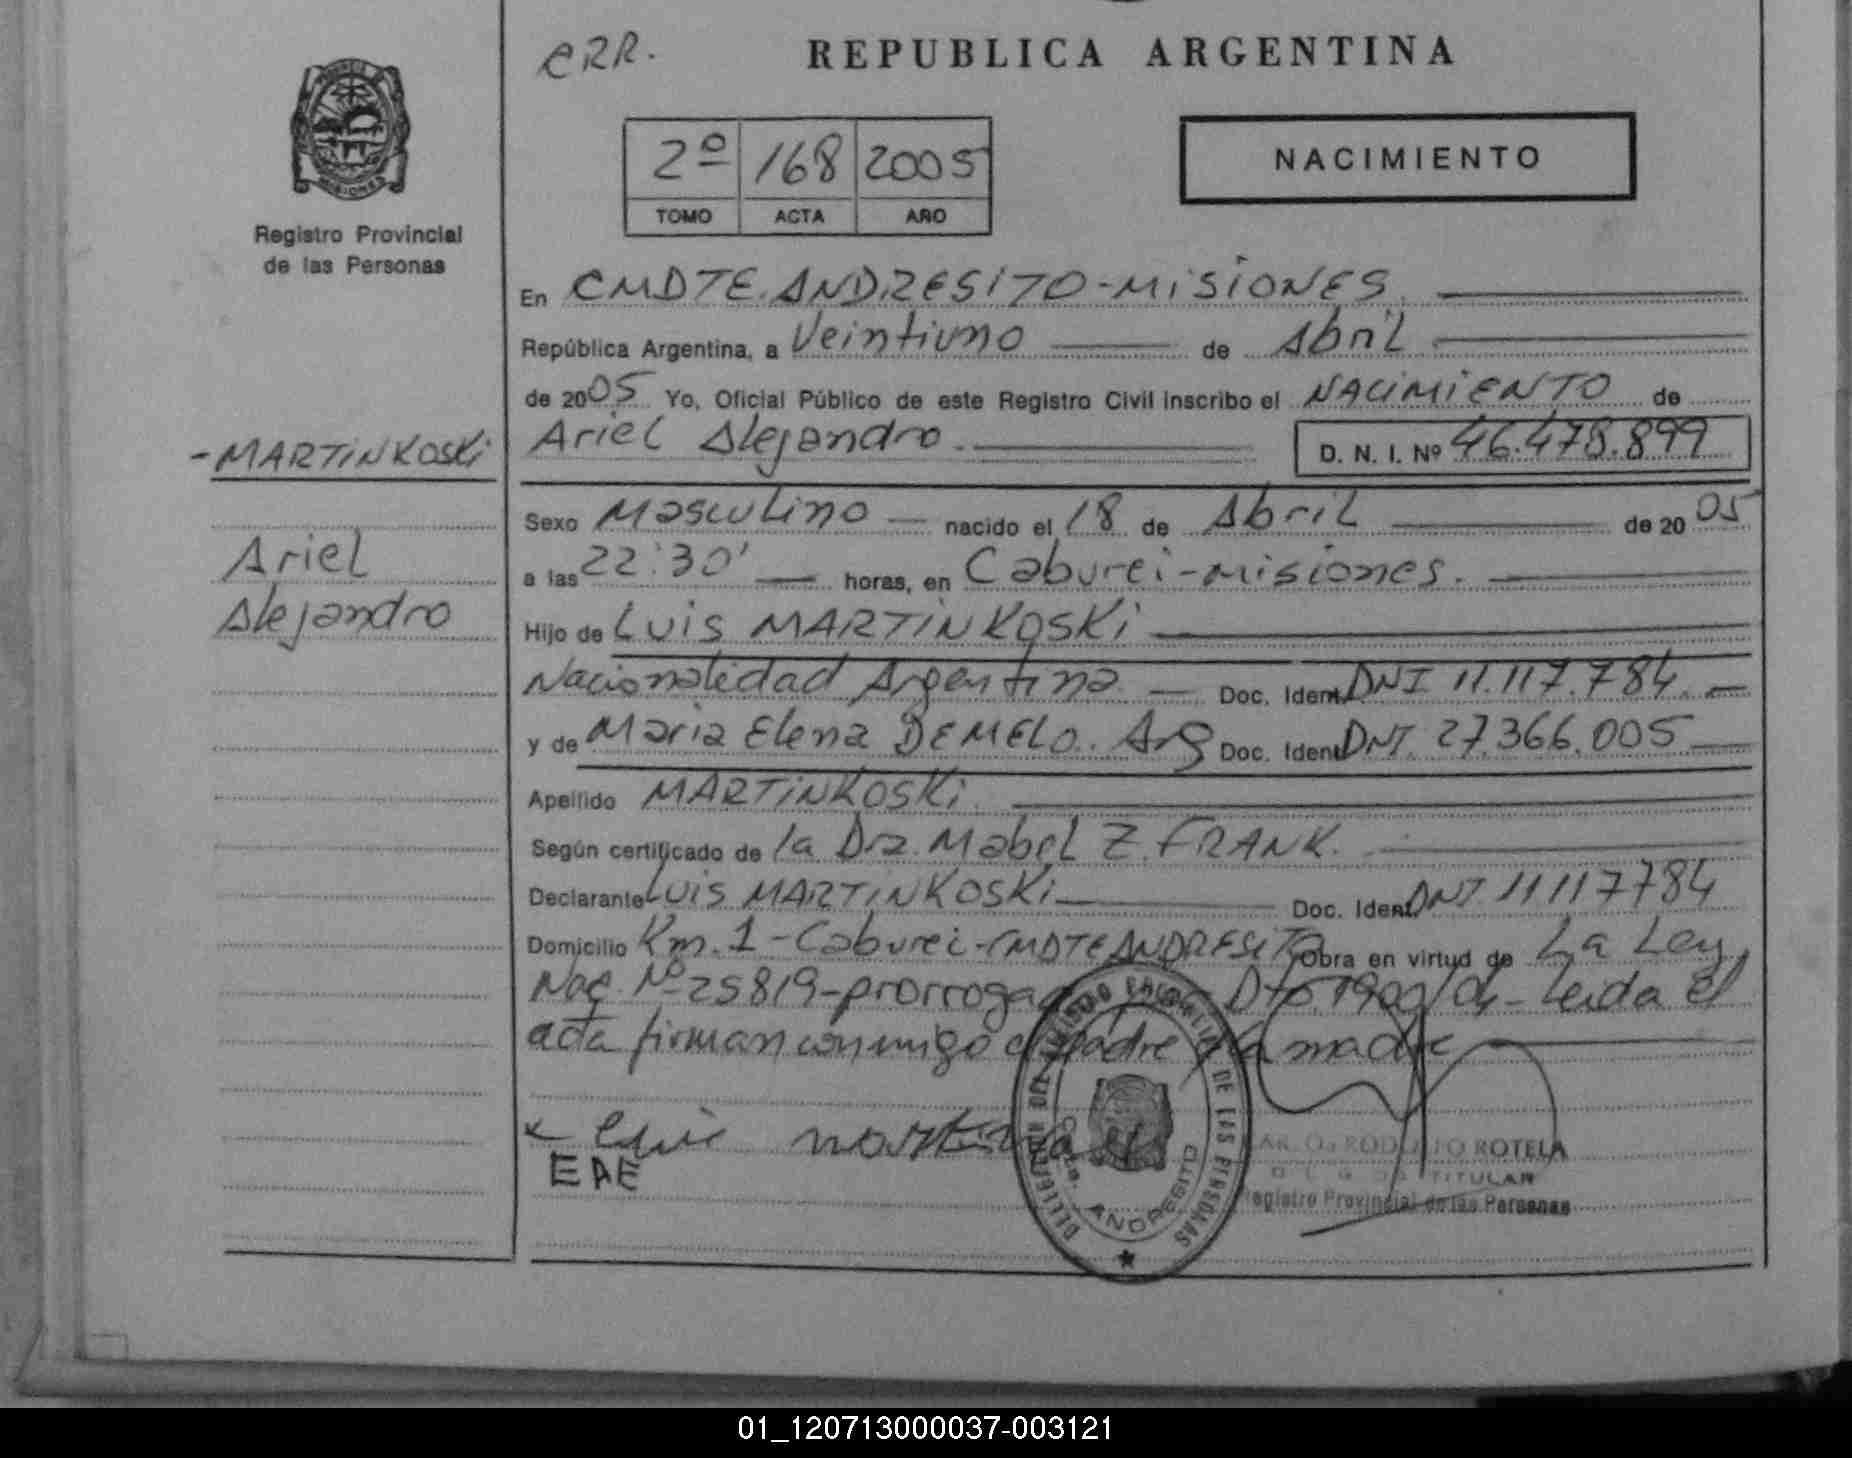 CRR.
REPUBLICA ARGENTINA
2º 168 2005
TOMO ACTA AÑO
NACIMIENTO
Registro Provincial
de las Personas
En CMDTE. ANDRESITO - MISIONES.
República Argentina, a Veintiuno de Abril
de 2005 Yo, Oficial Público de este Registro Civil inscribo el NACIMIENTO de
- MARTINKOSKI
Ariel Alejandro. D. N. I. Nº 46.478.899
Sexo Masculino nacido el 18 de Abril de 2005
Ariel
Alejandro
a las 22:30' horas, en Caburei - Misiones.
Hijo de Luis MARTINKOSKI
Nacionalidad Argentina Doc. Ident. DNI 11.117.784.
y de Maria Elena DEMELO. Arg Doc. Ident. DNI. 27.366.005
Apellido MARTINKOSKI
Según certificado de la Dra. Mabel Z. FRANK.
Declarante Luis MARTINKOSKI Doc. Ident. DNI. 11117784
Domicilio Km. 1 - Caburei - CMDTE ANDRESITO Obra en virtud de La Ley
Nac. Nº 25819 - Dto. 1900/04 - Leida el
acta firman conmigo el padre y la madre
x
EAE
RODOLFO ROTELA
TITULAR
Registro Provincial de las Personas
DE LAS PERSONAS
ANDRESITO
01_120713000037-003121